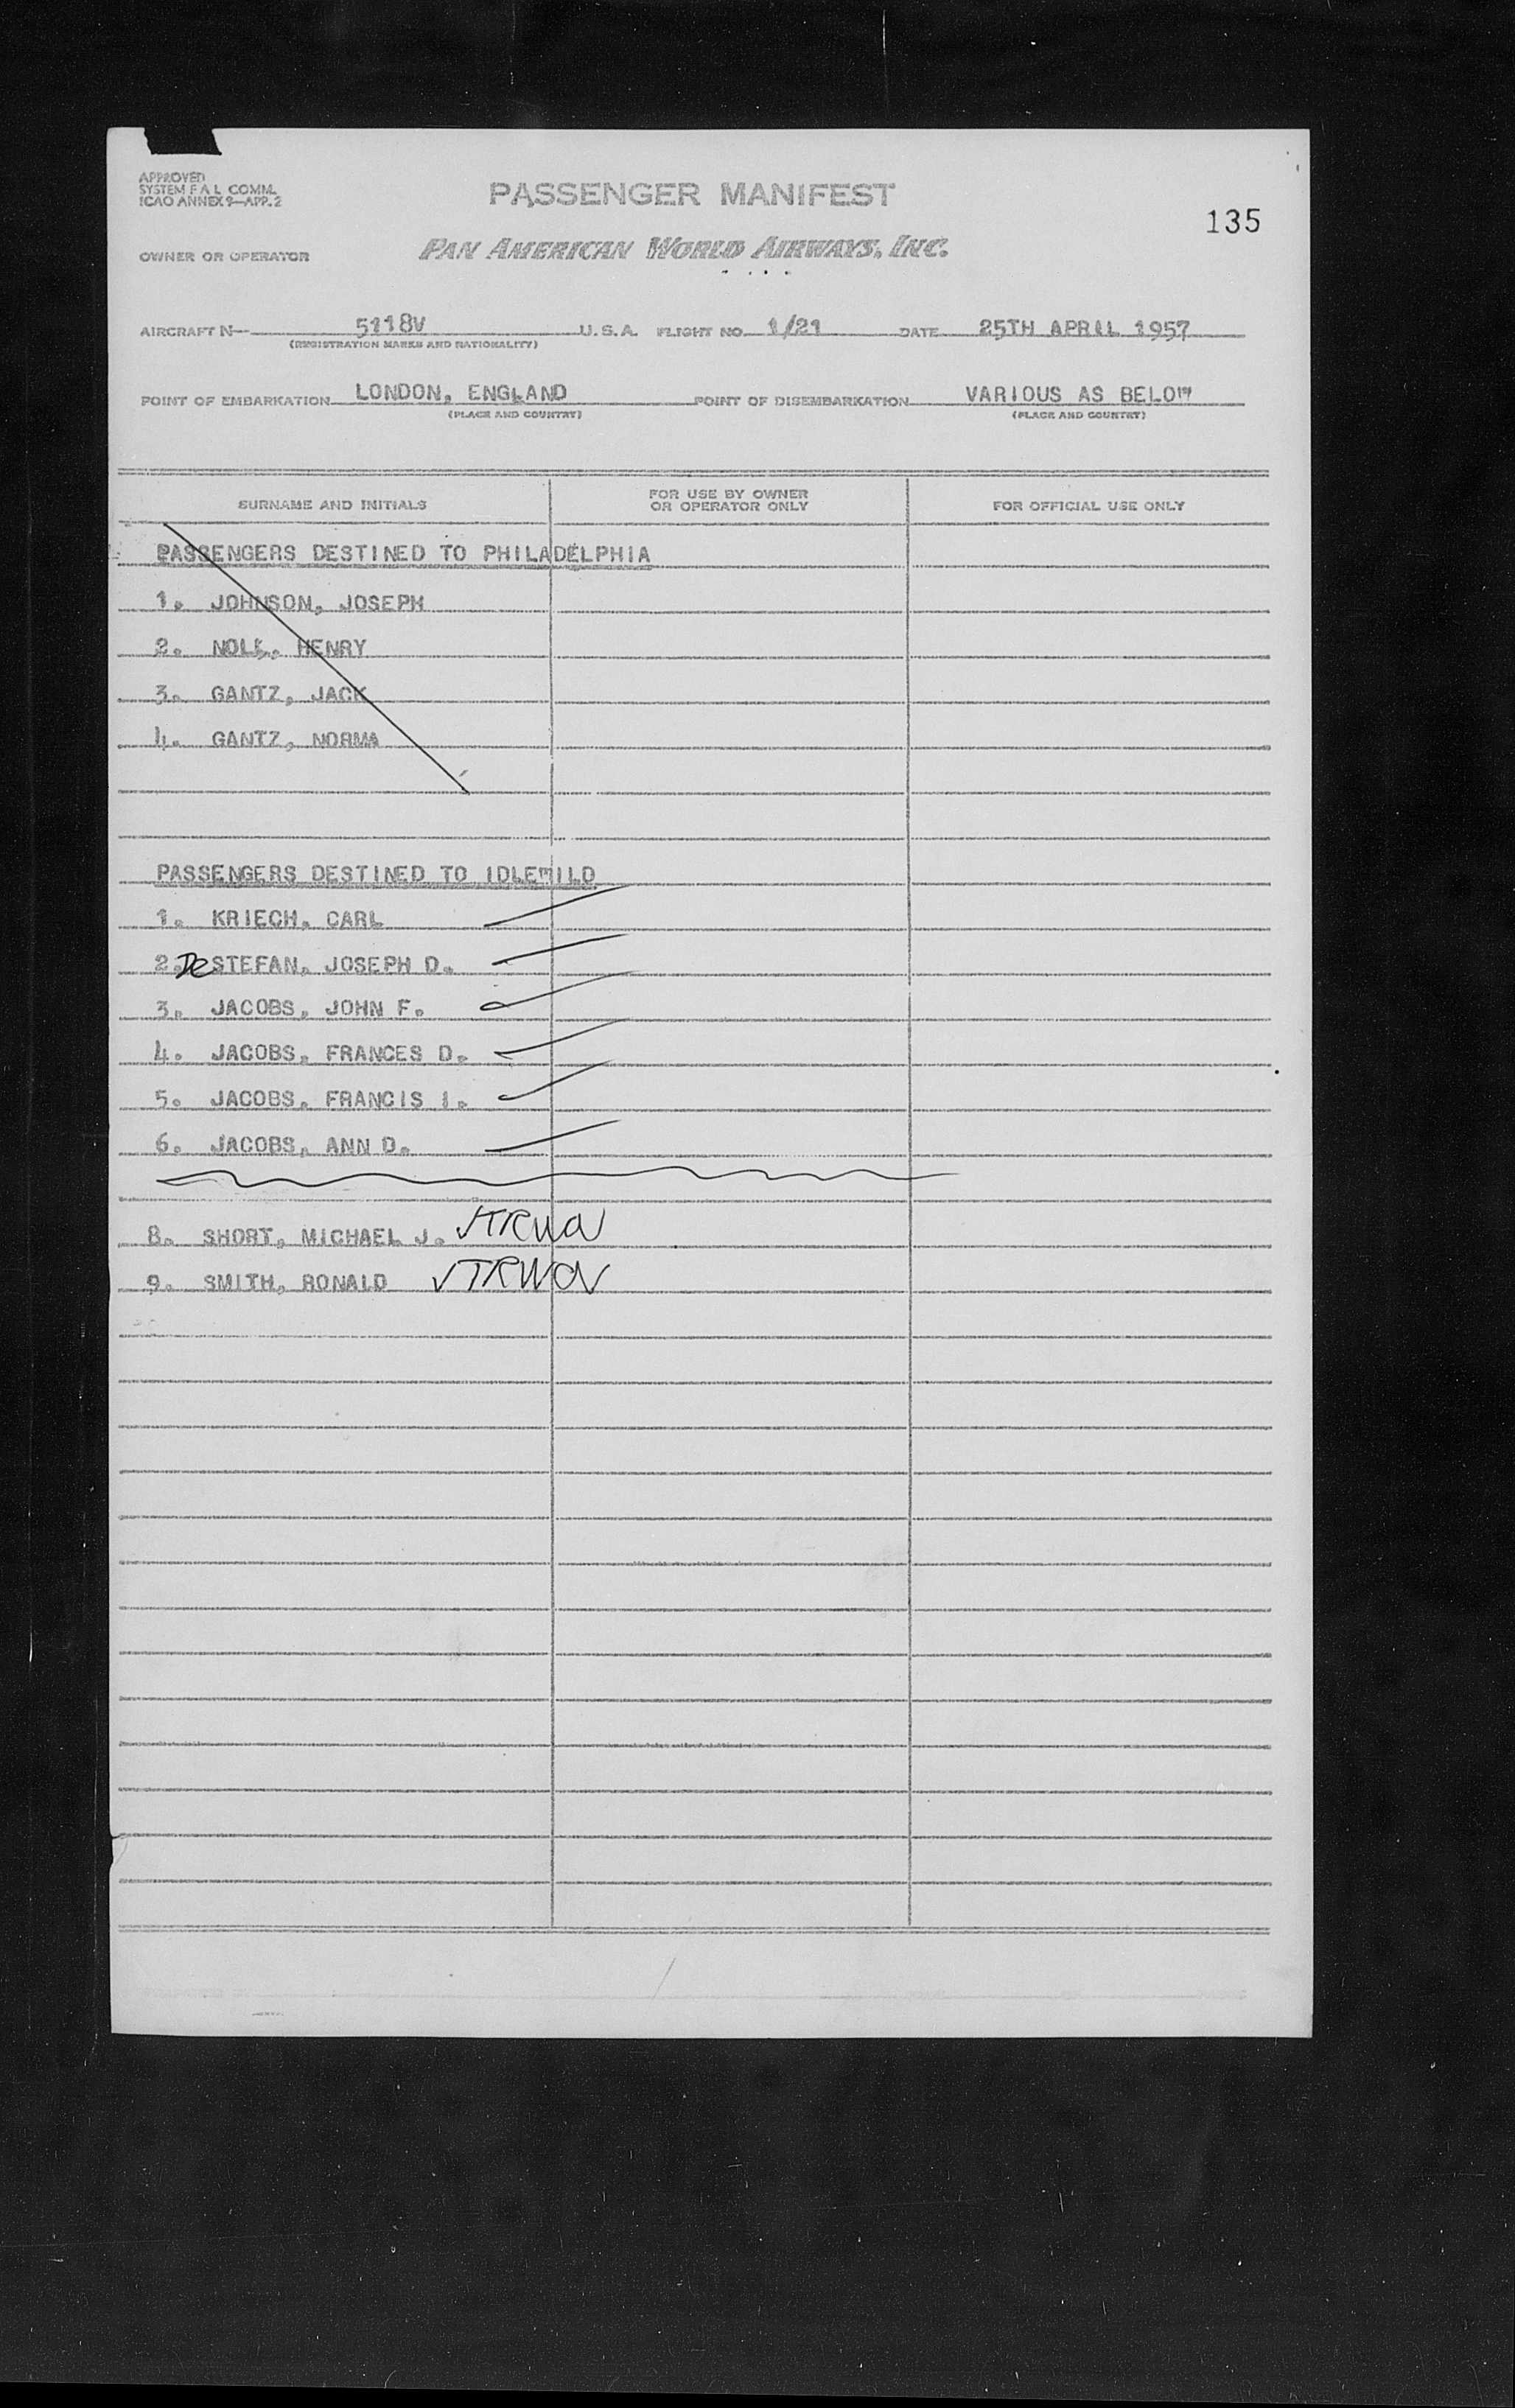 APPROVED
SYSTEM F A L COMM.
ICAO ANNEX 9—APP. 2
PASSENGER MANIFEST
135
OWNER OR OPERATOR PAN AMERICAN WORLD AIRWAYS, INC.
AIRCRAFT N— 5118V U.S.A. FLIGHT NO. 1/21 DATE 25TH APRIL 1957
(REGISTRATION MARKS AND NATIONALITY)
POINT OF EMBARKATION LONDON, ENGLAND POINT OF DISEMBARKATION VARIOUS AS BELOW
(PLACE AND COUNTRY) (PLACE AND COUNTRY)
SURNAME AND INITIALS FOR USE BY OWNER OR OPERATOR ONLY FOR OFFICIAL USE ONLY
PASSENGERS DESTINED TO PHILADELPHIA
1. JOHNSON, JOSEPH
2. NOLL, HENRY
3. GANTZ, JACK
4. GANTZ, NORMA
PASSENGERS DESTINED TO IDLEWILD
1. KRIECH, CARL
2. De STEFAN, JOSEPH D.
3. JACOBS, JOHN F.
4. JACOBS, FRANCES D.
5. JACOBS, FRANCIS I.
6. JACOBS, ANN D.
8. SHORT, MICHAEL J. √TRWOV
9. SMITH, RONALD √TRWOV